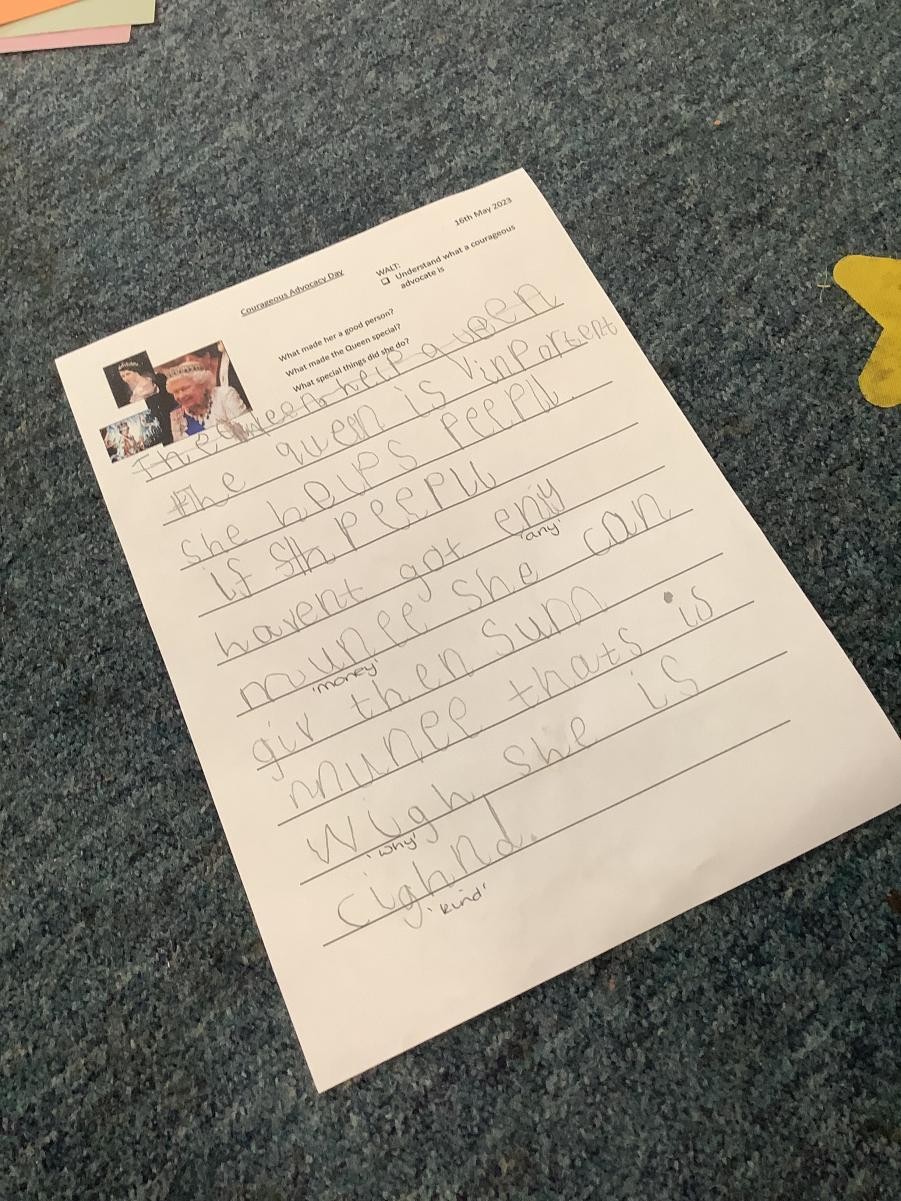 16th May 2023
Courageous Advocacy Day
WALT:
Understand what a courageous
advocate is
What made her a good person?
What made the Queen special?
What special things did she do?
The Queen help queen
The quen is vinportent
She helps peepll.
if peepll
havent got eny
'any'
munee she can
'money'
giv then sum
munee thats is
wigh she is
'why'
cighnd.
'kind'